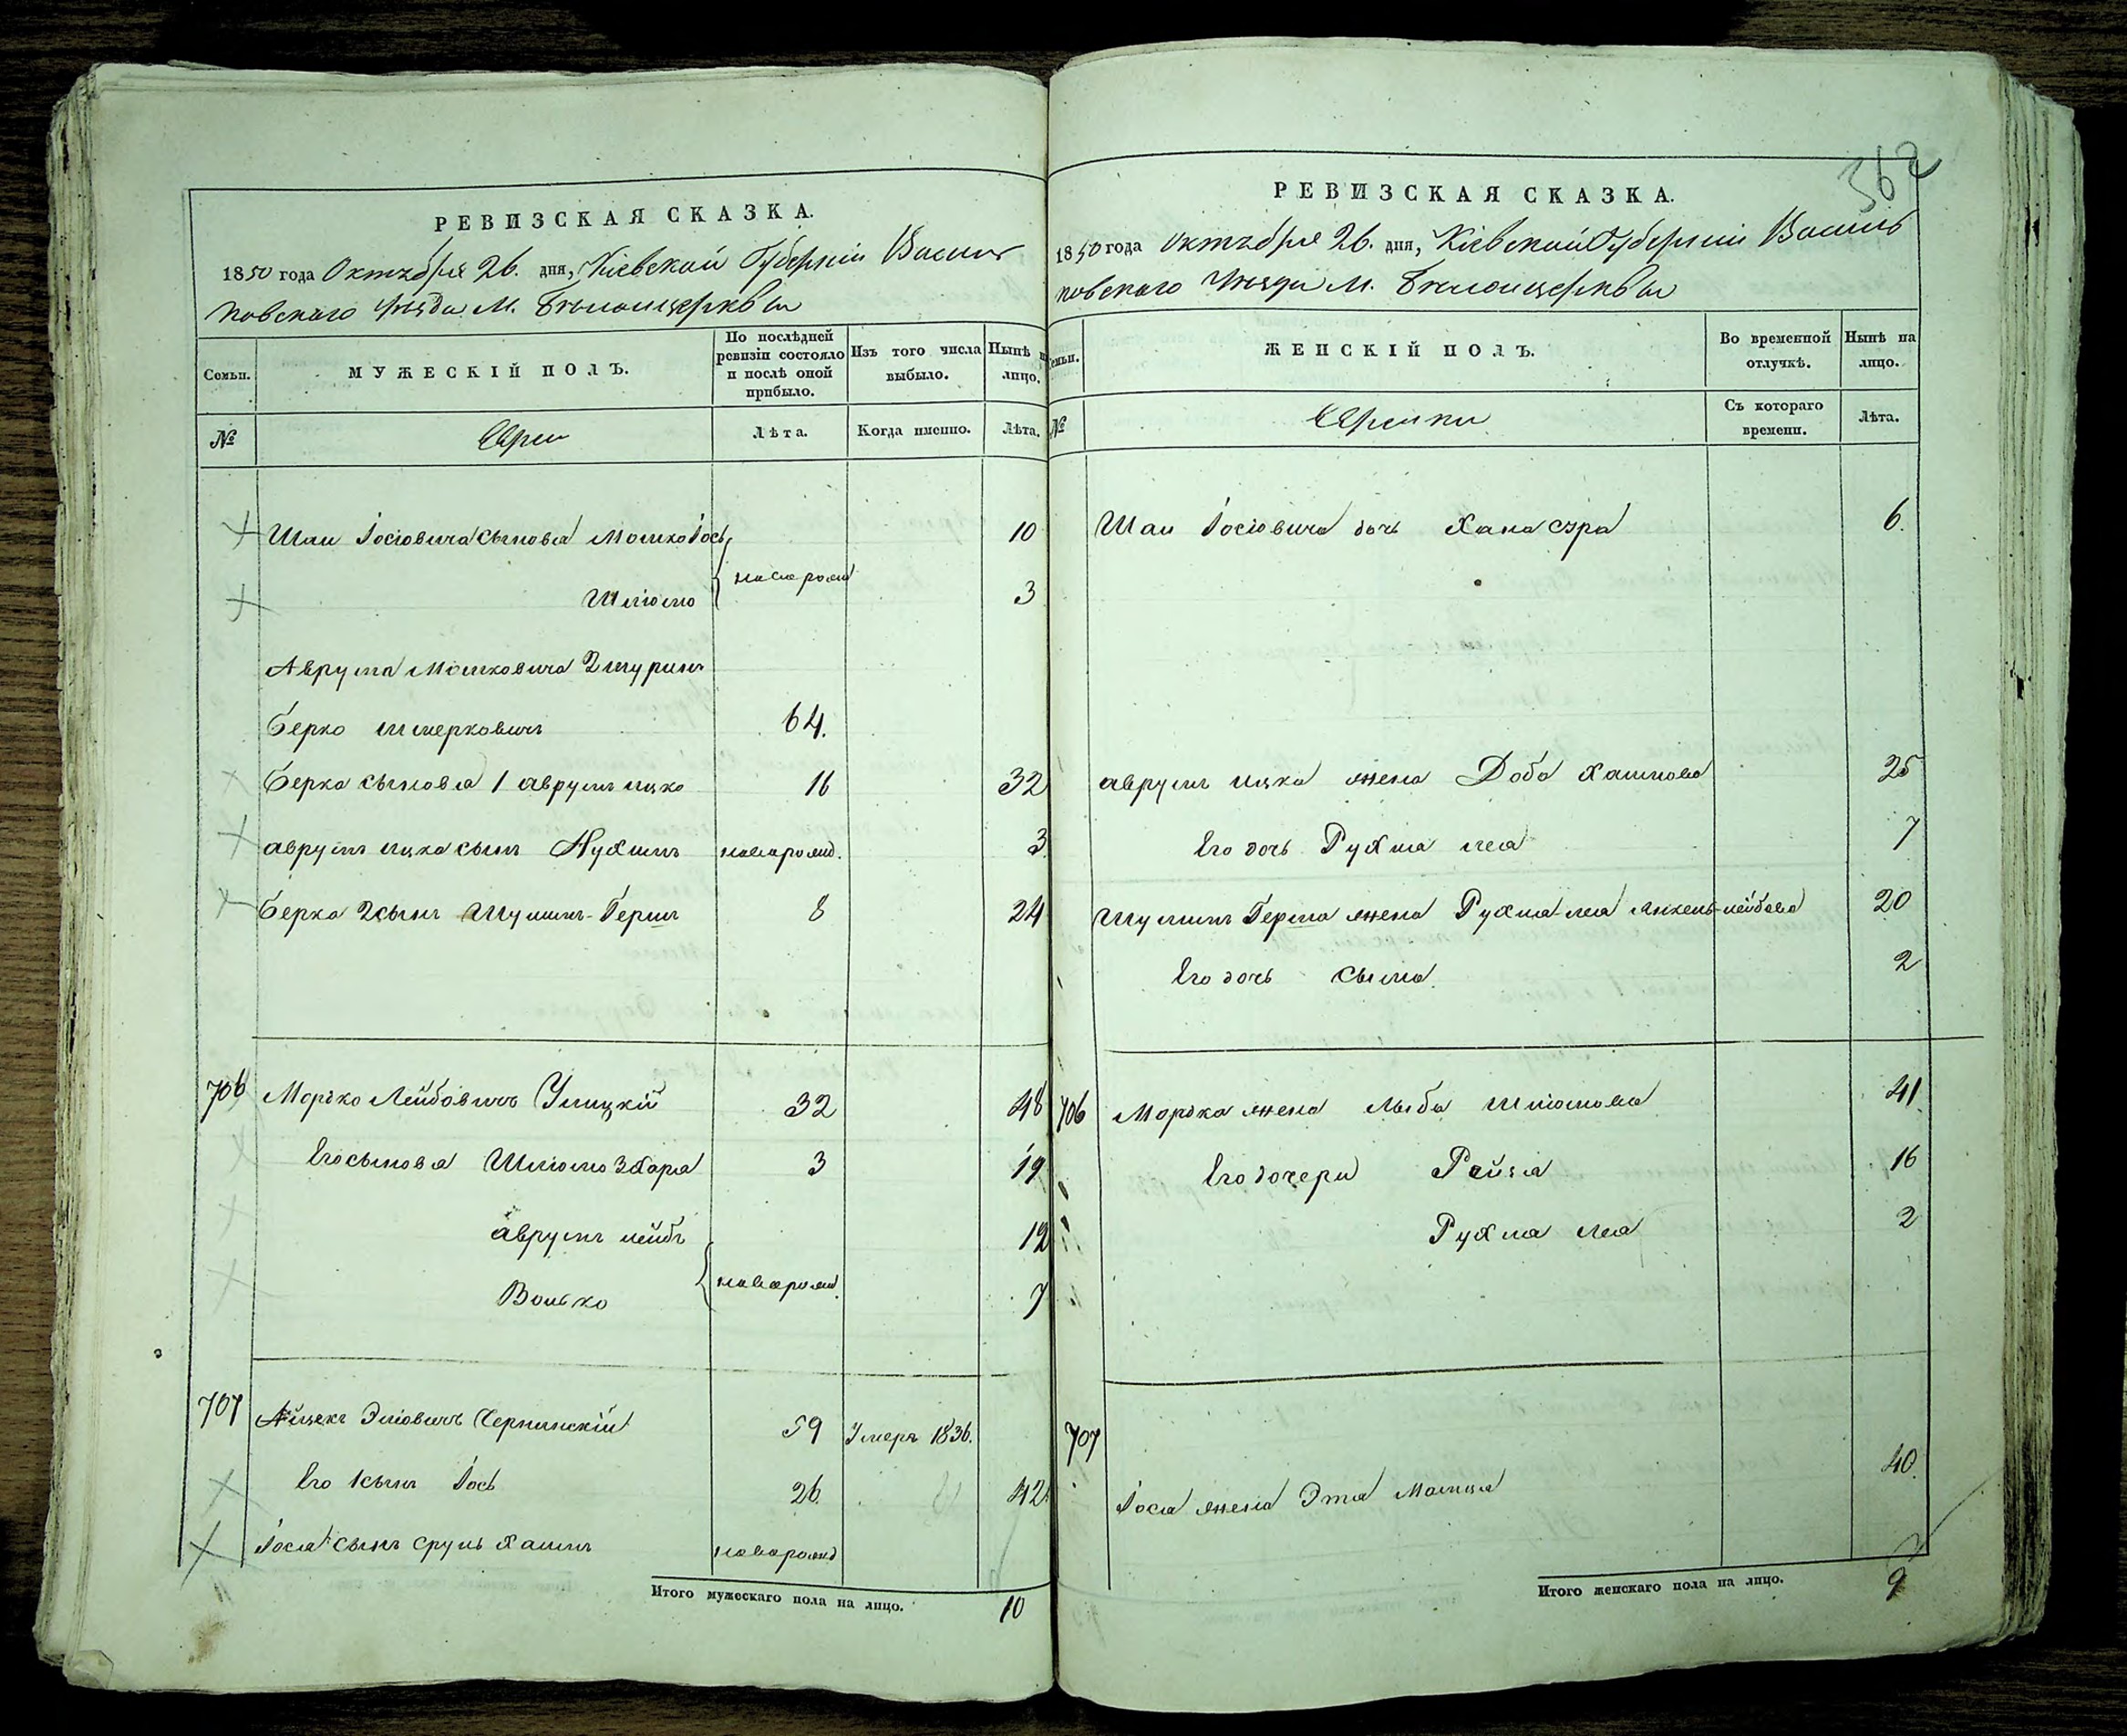 РЕВИЗСКАЯ СКАЗКА.
1850 года Октября 26. дня, Кіевской Губерніи Василь
ковскаго уѣзда М. Бѣлоцеркви
Семьи.
МУЖЕСКІЙ ПОЛЪ.
По послѣдней ревизіи состояло и послѣ оной прибыло.
Изъ того числа выбыло.
Нынѣ на лицо.
№
Евреи
Лѣта.
Когда именно.
Лѣта.
Шаи Іосіовича сыновья Мошко Іось 10
Шліомо новорожд 3
Аврума Мошковича 2 шуринъ
Берко Шмерковичъ 64.
Берка сыновья 1 аврумъ ицко 16 32
аврумъ ицка сынъ Нухимъ новорожд. 3
Берка 2 сынъ Шулимъ-Гершъ 8 24
706 Морько Лейбовичъ Улицкій 32 48
Его сыновья Шліомо Зхарія 3 19
аврумъ лейбъ 12
Волько новорожд. 7
707 Айзекъ Эліовичъ Чернинскій 59 Умеръ 1836.
Его 1 сынъ Іось 26. 42
Іося сынъ сруль Хаимъ новорожд
Итого мужескаго пола на лицо. 10
362
РЕВИЗСКАЯ СКАЗКА.
1850 года Октября 26. дня, Кіевской Губерніи Василь
ковскаго Уѣзда М. Бѣлоцеркви
Семьи.
ЖЕНСКІЙ ПОЛЪ.
Во временной отлучкѣ.
Нынѣ на лицо.
№
Еврейки
Съ котораго времени.
Лѣта.
Шаи Іосіовича дочь Хана Сура 6.
аврумъ ицка жена Доба Хаимова 25
Его дочь Рухля леа 7
Шулимъ Герша жена Рухля леа Янкель-лейбова 20
Его дочь Сыма 2
706 Морька жена Лыба Шліомова 41
Его дочери Рейзя 16
Рухля Леа 2
707
Іося жена Этя 40.
Итого женскаго пола на лицо. 9